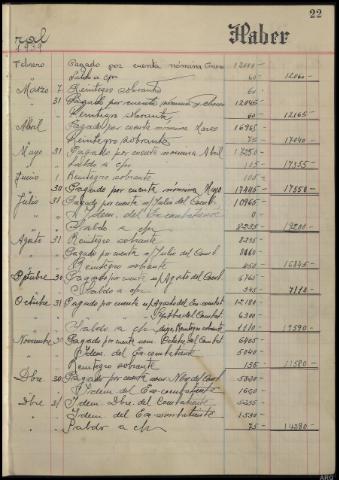 22
ral
1939
Haber
Febrero Pagado por cuenta nómina Enero 12000-
" Saldo a cta 60- 12060-
Marzo 7 Reintegro sobrante 60-
" 31 Pagado por cuenta nómina 12045-
" Reintegro sobrante 60 12165-
Abril Pagado por cuenta nómina Marzo 16965-
Reintegro sobrante 75 17040-
Mayo 31 Pagado por cuenta nómina Abril 17250-
" Saldo a cta 105- 17355-
Junio 1 Reintegro sobrante 105-
" 30 Pagado por cuenta nómina Mayo 17445- 17550-
Julio 31 Pagado por cuenta n/ Julio del Comb. 10965-
" " Idem. del Ex-combatiente 0-
" Saldo a cta 8235- 19200-
Agosto 31 Reintegro sobrante 8235-
" Pagado por cuenta n/ Julio del Comb.
" Reintegro sobrante
Septbre 30 Pagado por cuenta n/ Agosto del Comb. 6765-
" Saldo a cta 345- 7110-
Octubre 31 Pagado por cuenta n/ Agosto del Ex-combat. 12180-
" Septbre del Combat. 6300-
" Saldo a cta Reintegro sobrante 1110 19590-
Noviembre 30 Pagado por cuenta nom. Octubre del Combat. 6405-
" Idem. del Ex-combatiente 5040-
" Reintegro sobrante 135 11580-
Dbre 30 Pagado por cuenta nom Nov. del Comb.
" Idem del Ex-combatiente 1650-
Dbre 31 Idem. Dbre. del Combatiente 5255-
" Idem del Ex-combatiente 1590-
" Saldo a cta 75- 14280-
ARG